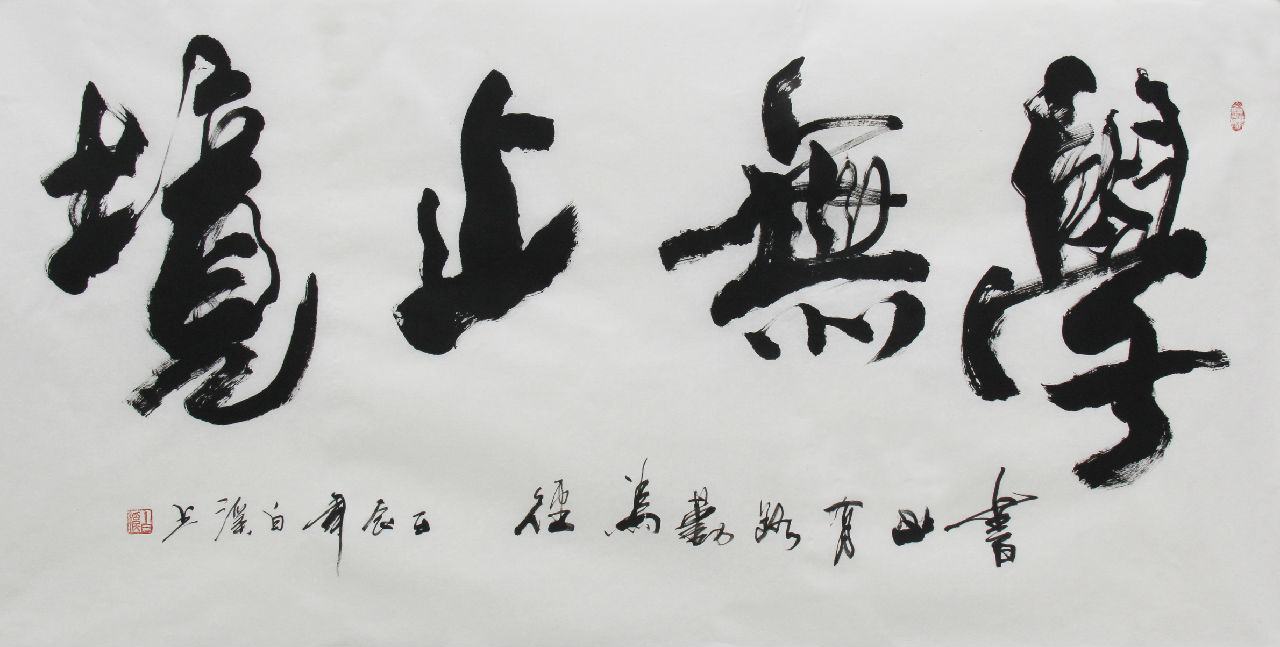 學無止境
書山有路勤為徑 壬辰年白濱書